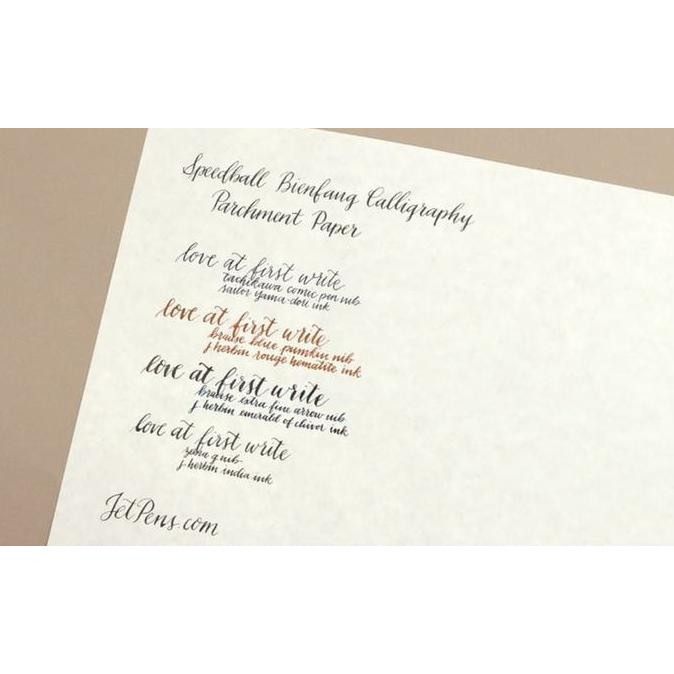 Speedball Bienfang Calligraphy
Parchment Paper
love at first write
tachikawa comic pen nib
sailor yama-dori ink
love at first write
brause blue pumkin nib
j herbin rouge hematite ink
love at first write
brause extra fine arrow nib
j. herbin emerald of chivor ink
love at first write
zebra g nib
j. herbin india ink
JetPens.com